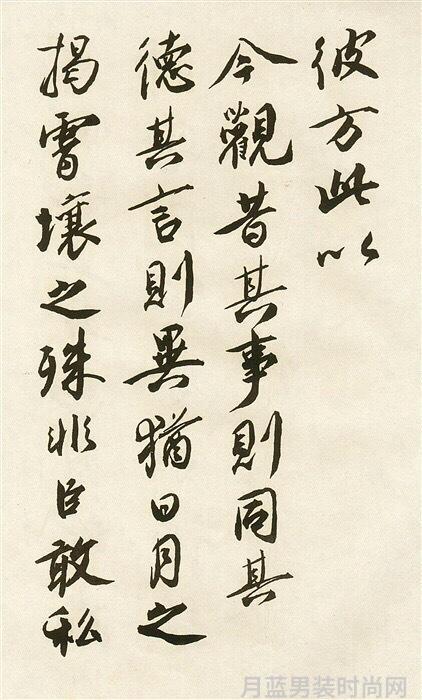 彼方此以
今觀昔其事則同其
德其言則異猶日月之
揭霄壤之殊非臣敢私
月蓝男装时尚网